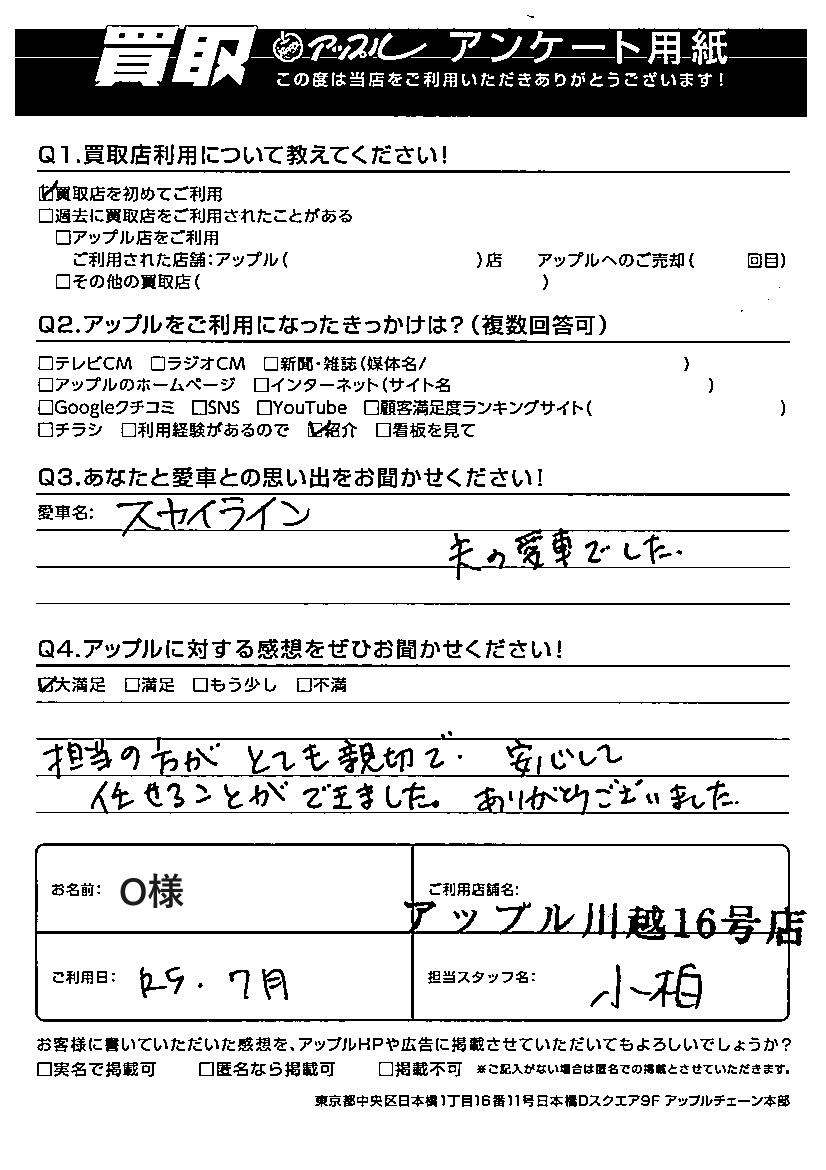 買取 アップル アンケート用紙
この度は当店をご利用いただきありがとうございます!
Q1.買取店利用について教えてください!
☑買取店を初めてご利用
□過去に買取店をご利用されたことがある
□アップル店をご利用
ご利用された店舗:アップル( )店 アップルへのご売却( 回目)
□その他の買取店( )
Q2.アップルをご利用になったきっかけは?(複数回答可)
□テレビCM □ラジオCM □新聞・雑誌(媒体名/ )
□アップルのホームページ □インターネット(サイト名 )
□Googleクチコミ □SNS □YouTube □顧客満足度ランキングサイト( )
□チラシ □利用経験があるので ☑紹介 □看板を見て
Q3.あなたと愛車との思い出をお聞かせください!
愛車名: スカイライン
夫の愛車でした.
Q4.アップルに対する感想をぜひお聞かせください!
☑大満足 □満足 □もう少し □不満
担当の方が とても親切で. 安心して
任せることができました。 ありがとうございました.
お名前: O様
ご利用店舗名:
アップル川越16号店
ご利用日: R5.7月
担当スタッフ名: 小柏
お客様に書いていただいた感想を、アップルHPや広告に掲載させていただいてもよろしいでしょうか?
□実名で掲載可 □匿名なら掲載可 □掲載不可 ※ご記入がない場合は匿名での掲載とさせていただきます。
東京都中央区日本橋1丁目16番11号日本橋Dスクエア9F アップルチェーン本部